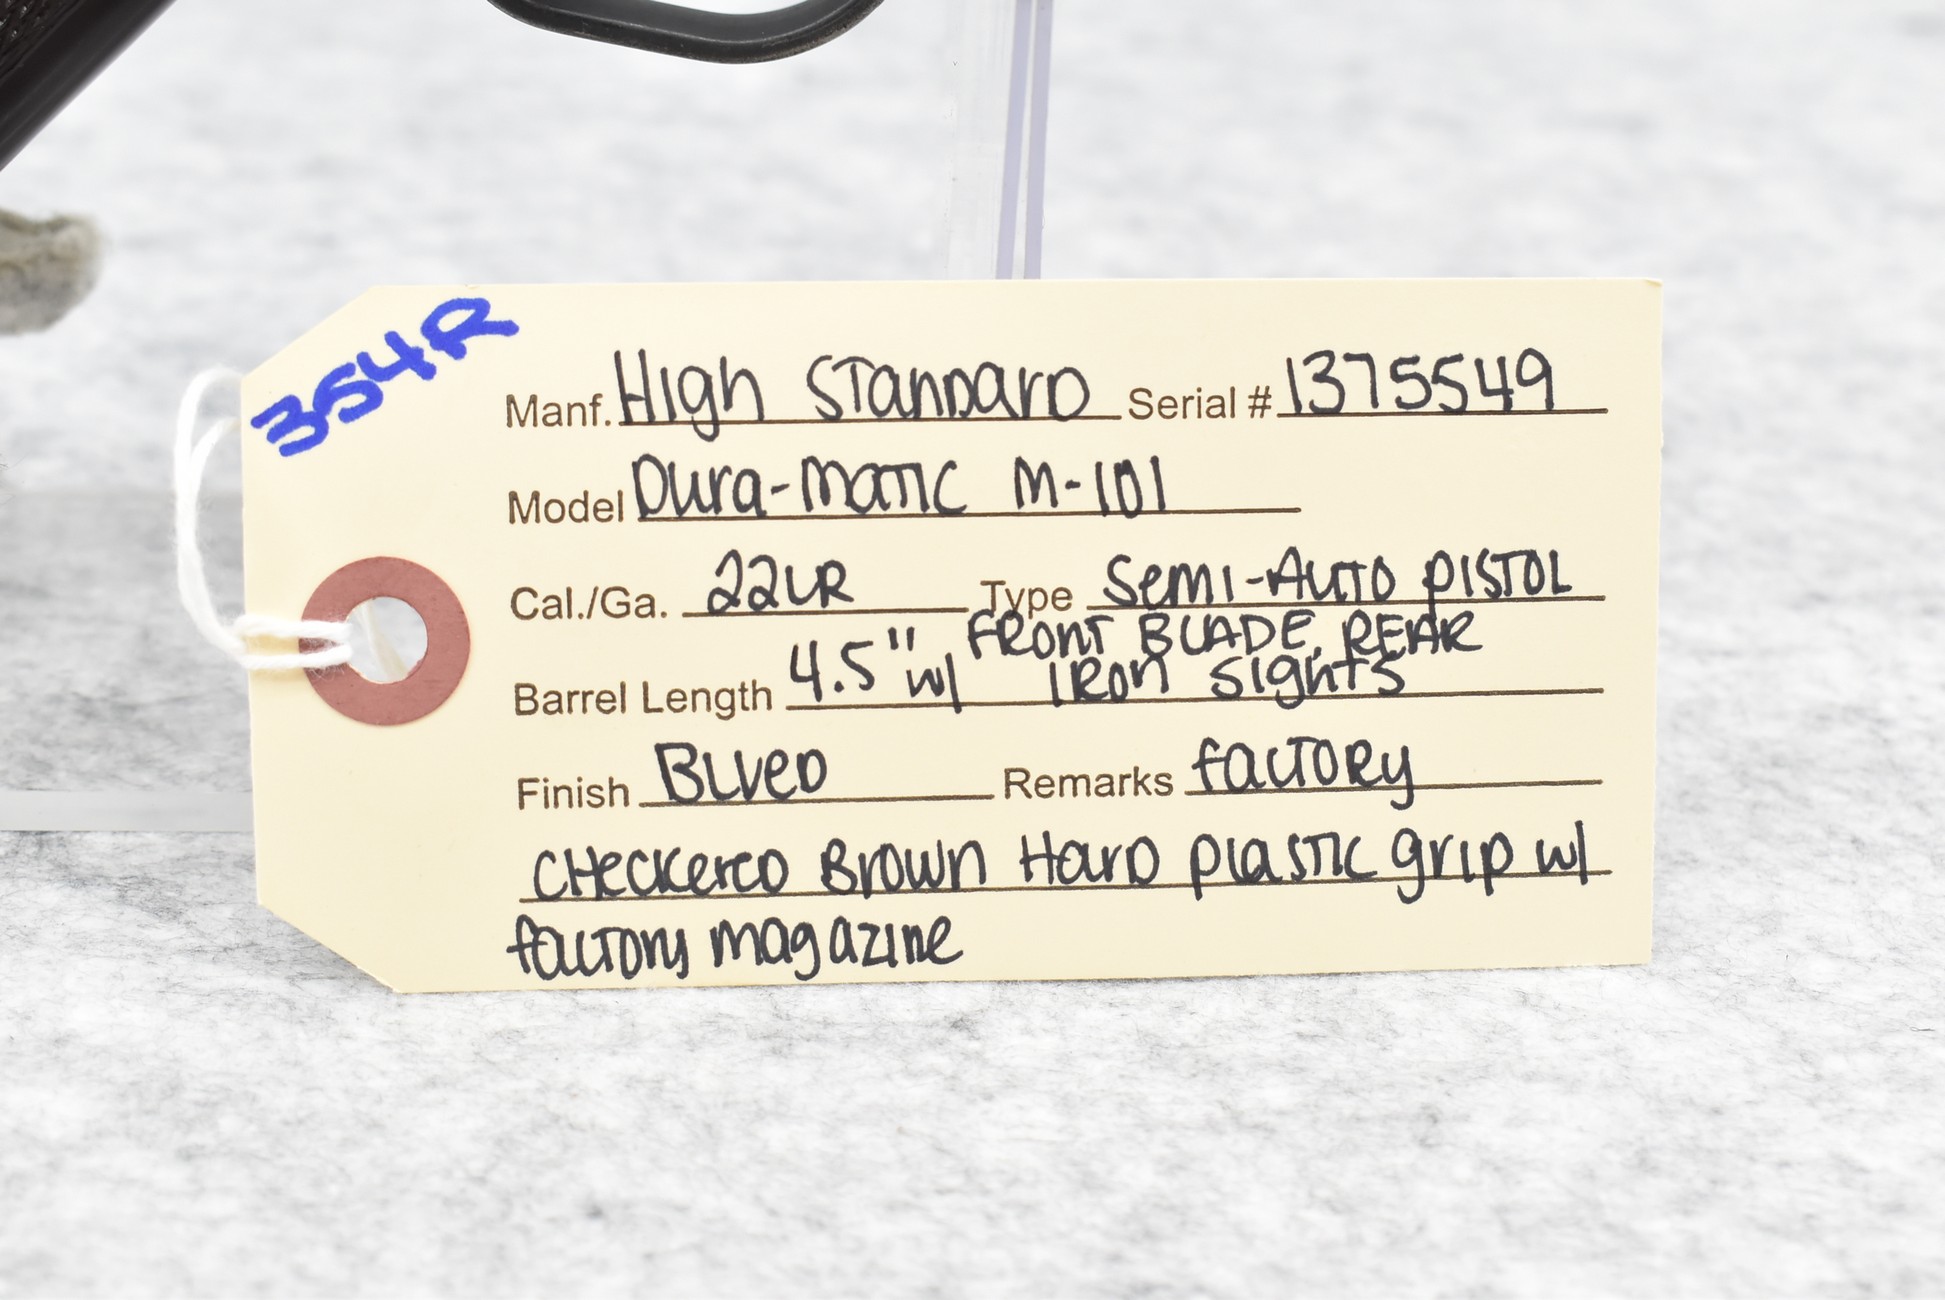 354R
Manf. High Standard Serial # 1375549
Model Dura-Matic M-101
Cal./Ga. 22LR Type Semi-Auto Pistol
Barrel Length 4.5" w/ FRONT BLADE, REAR
IRON SIGHTS
Finish Blued Remarks factory
checkered Brown Hard plastic grip w/
factory magazine